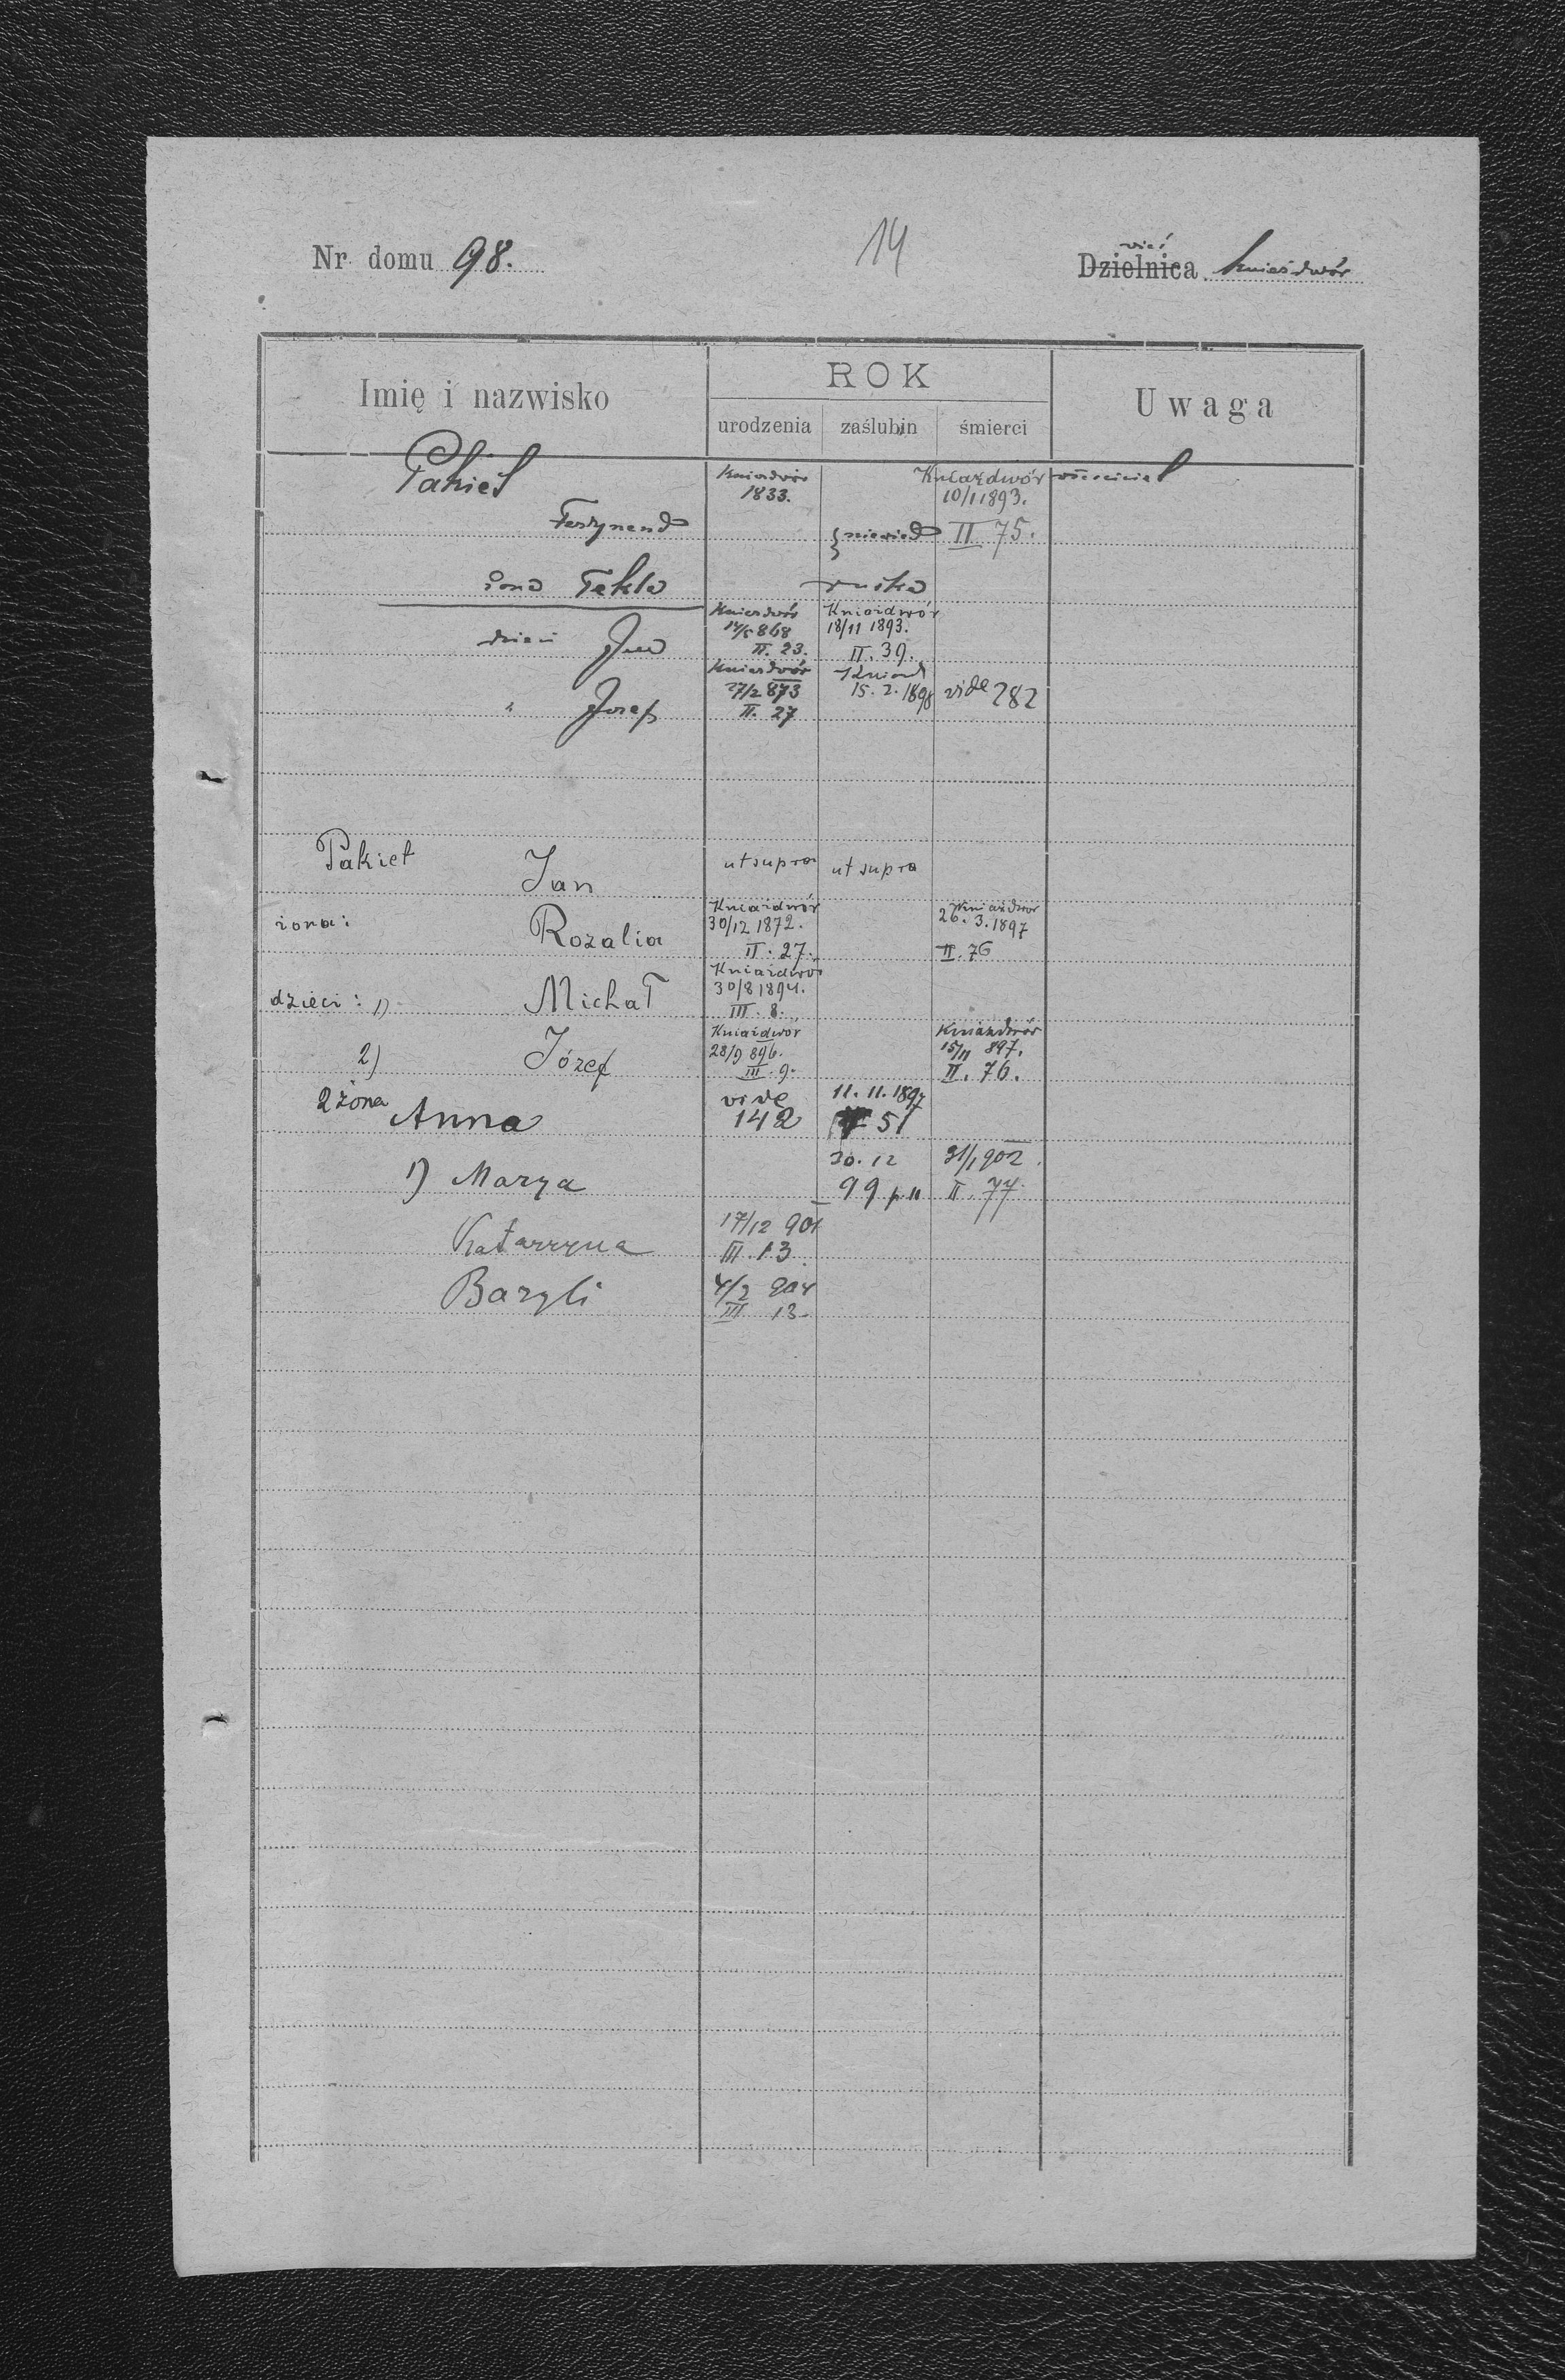 Nr domu 98.
14
wieś
Dzielnica Kniaźdwór
Imię i nazwisko
ROK
urodzenia zaślubin śmierci
Uwaga
Pakiet
Kniaźdwór
1833.
Kniaźdwór
10/1 1893.
właściciel
Ferdynand
II 75.
żona Tekla
ruska
dzieci Jan
Kniaźdwór
14/5 868
II. 23.
Kniaźdwór
18/11 1893.
II. 39.
" Józef
Kniaźdwór
27/2 873
II. 27
15. 2. 1898
vide 282
Pakiet Jan
ut supra ut supra
żona: Rozalia
Kniaźdwór
30/12 1872.
II. 27.
Kniaźdwór
26. 3. 1897
II. 76
dzieci: 1) Michał
Kniaźdwór
30/8 1894.
III. 8.
2) Józef
Kniaźdwór
28/9 896.
III. 9.
Kniaźdwór
15/11 897.
II. 76.
2 żona Anna
vide
142
11. 11. 1897
51
1) Marya
30. 12
99 p. II
31/1 902.
II. 77
Katarzyna
17/12 901
III. 13
Bazyli
4/2 904
III 13